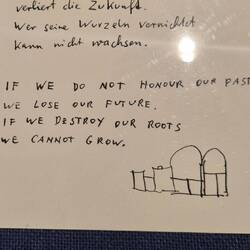 verliert die Zukunft.
Wer seine Wurzeln vernichtet
kann nicht wachsen.
IF WE DO NOT HONOUR OUR PAST
WE LOSE OUR FUTURE.
IF WE DESTROY OUR ROOTS
WE CANNOT GROW.